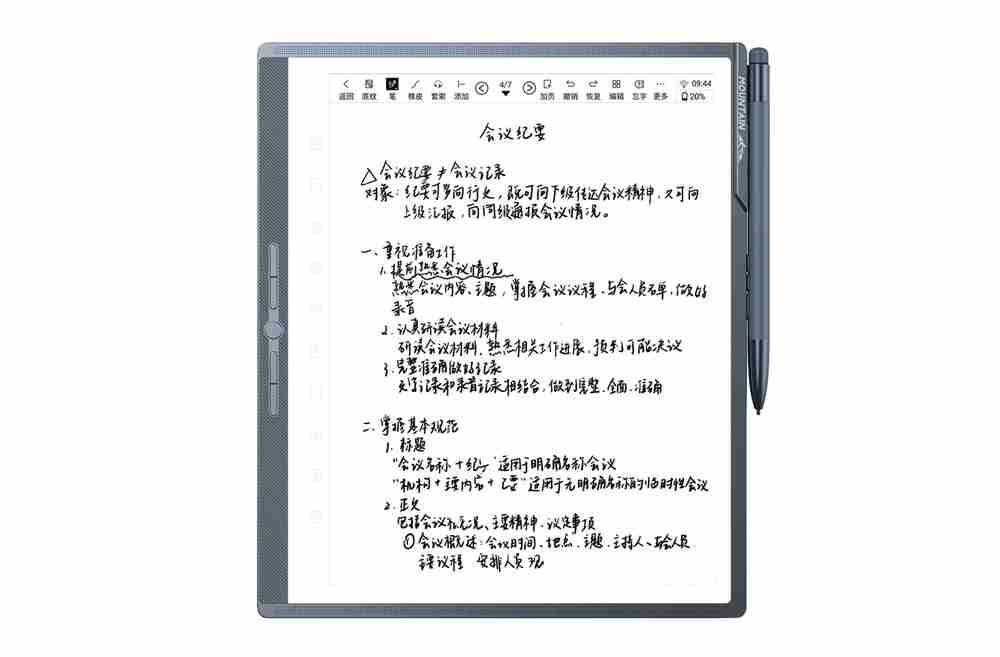 4/7
09:44
返回 底纹 笔 橡皮 套索 添加 加页 撤销 恢复 编辑 忘字 更多
20%
MOUNTAIN
会议纪要
△会议纪要≠会议记录
对象:纪要可多向行文,既可向下级传达会议精神,又可向
上级汇报,向同级通报会议情况。
一、重视准备工作
1.提前熟悉会议情况
熟悉会议内容、主题,掌握会议议程、与会人员名单,做好
录音
2.认真研读会议材料
研读会议材料,熟悉相关工作进展,预判可能决议
3.完整准确做好记录
文字记录和录音记录相结合,做到完整、全面、准确
二、掌握基本规范
1.标题
“会议名称+纪要”适用于明确名称会议
“机构+主要内容+纪要”适用于无明确名称的临时性会议
2.正文
包括会议概况、主要精神、议定事项
①会议概述:会议时间、地点、主题、主持人、与会人员
主要议程 安排人员